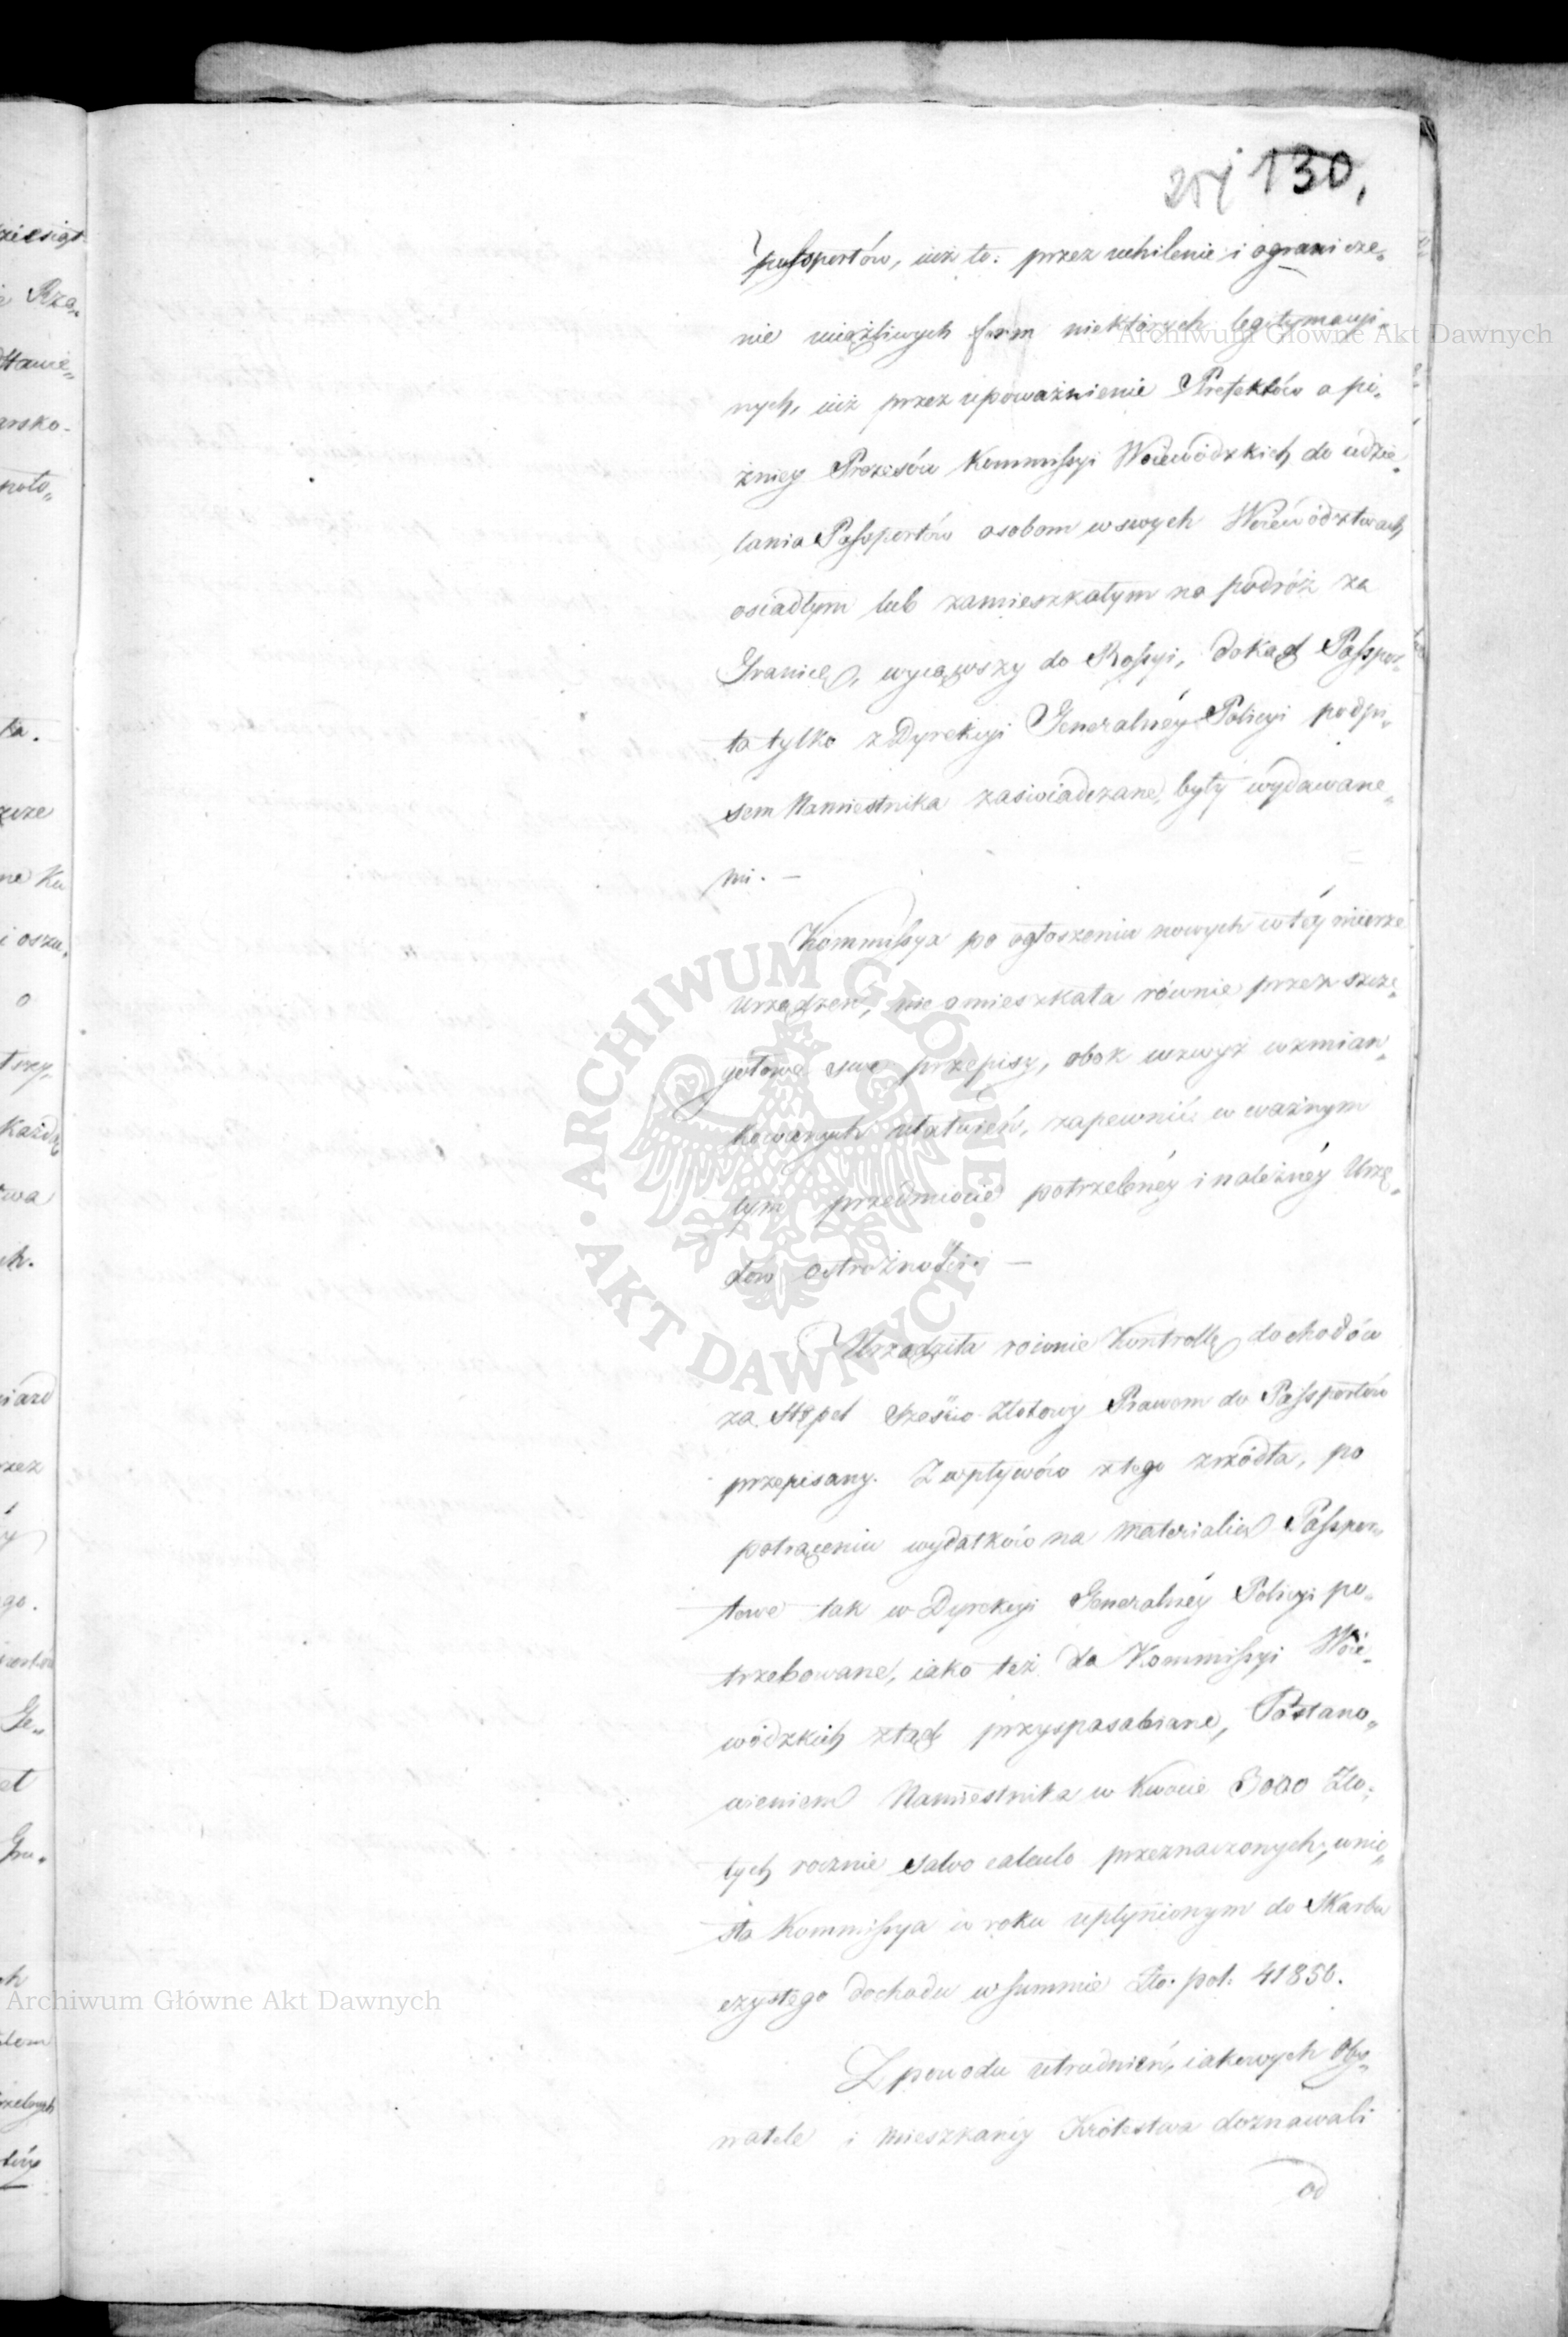 130,
passportów, iuż to: przez uchilenie i ogranicze„
nie uciążliwych form niektórych legitymacyi„
nych, iuż przez upoważnienie Prefektów a pó„
źniey Prezesów Kommissyi Woiewódzkich do udzie„
lania Passportów osobom w swych Woiewództwach
osiadłym lub zamieszkałym na podróż za
Granicę, wyiąwszy do Rossyi, dokąd Passpor„
ta tylko z Dyrekcyi Generalnéy Policyi podpi„
sem Namiestnika zaświadczane, były wydawane„
mi. —
Kommissya po ogłoszeniu nowych w téy mierze
urządzeń, nie omieszkała równie przez szcze„
gółowe swe przepisy, obok wzwyż wzmian„
kowanych ułatwień, zapewnić w ważnym
tym przedmiocie potrzebnéy i należnéy Urzę„
dów ostrożności. —
Urządziła równie Kontrollę dochodów
za Stępel sześcio Złotowy Prawem do Passportów
przepisany. Z wpływów z tego źrzódła, po
potrąceniu wydatków na materialia Passpor„
towe tak w Dyrekcyi Generalnéy Policyi po„
trzebowane, iako też do Kommissyi Woie„
wódzkich ztąd przysposabiane, Postano„
wieniem Namiestnika w kwocie 3000 Zło„
tych rocznie salvo calculo przeznaczonych, wnio„
sła Kommissya w roku upłynionym do Skarbu
czystego dochodu w summie Zło. pol. 41856.
Z powodu utrudnień, iakowych Oby„
watele i mieszkańcy Królestwa doznawali
od
Archiwum Główne Akt Dawnych
ARCHIWUM GŁÓWNE · AKT DAWNYCH ·
Archiwum Główne Akt Dawnych